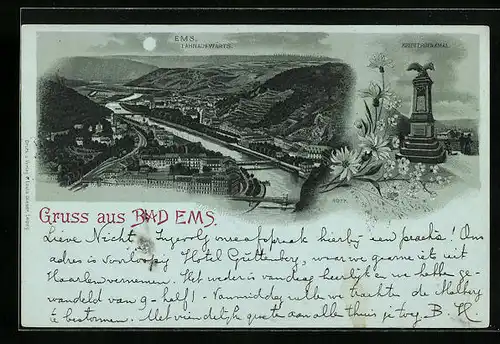 EMS.
LAHNAUFWÄRTS.
KRIEGERDENKMAL.
Gruss aus BAD EMS.
Lieve Nicht! Ingevolg onze afspraak hierbij een prents! Ons
adres is voorloopig Hotel Guttenberg, waar we gaarne iets uit
Haarlem vernemen. Het weder is vandaag heerlijk en we hebben ge-
wandeld van 9 - half 1 - Vanmiddag zullen we trachten de Malberg
te bestormen. Met vriendelijke groete aan allen thuis je toeg. B. H.